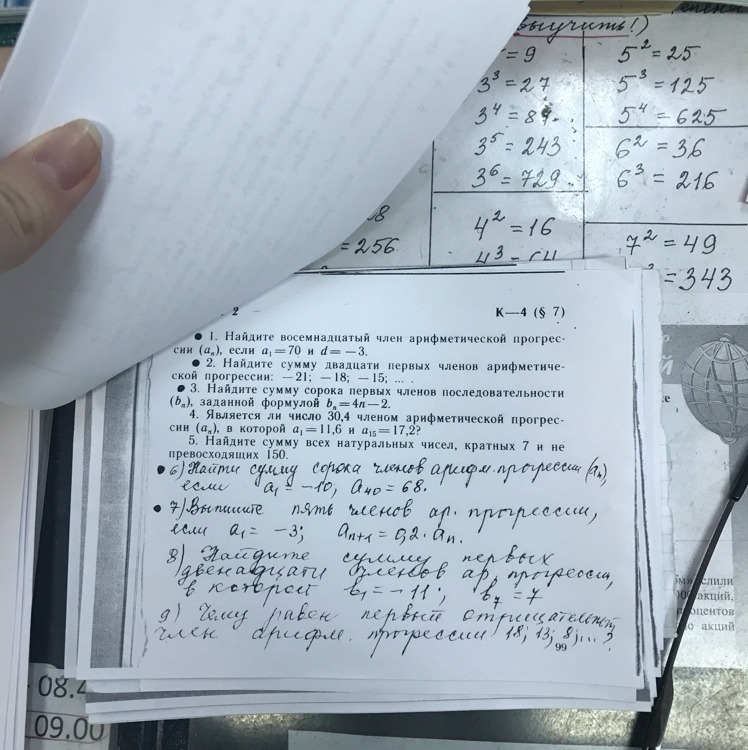 выучить!)
= 9
3³ = 27
3⁴ = 81
3⁵ = 243
3⁶ = 729
5² = 25
5³ = 125
5⁴ = 625
6² = 36
6³ = 216
= 256
4² = 16
4³ = 64
7² = 49
= 343
2
К—4 (§ 7)
1. Найдите восемнадцатый член арифметической прогрес-
сии (aₙ), если a₁=70 и d=−3.
2. Найдите сумму двадцати первых членов арифметиче-
ской прогрессии: −21; −18; −15; ... .
3. Найдите сумму сорока первых членов последовательности
(bₙ), заданной формулой bₙ=4n−2.
4. Является ли число 30,4 членом арифметической прогрес-
сии (aₙ), в которой a₁=11,6 и a₁₅=17,2?
5. Найдите сумму всех натуральных чисел, кратных 7 и не
превосходящих 150.
6) Найти сумму сорока членов арифм. прогрессии (aₙ),
если a₁ = −10, a₄₀ = 68.
7) Выпишите пять членов ар. прогрессии,
если a₁ = −3; aₙ₊₁ = 0,2·aₙ.
8) Найдите сумму первых
двенадцати членов ар. прогрессии,
в которой b₁ = −11; b₇ = 7
9) Чему равен первый отрицательный
член арифм. прогрессии 18; 13; 8;...?
99
акций,
акций
08.
09.00